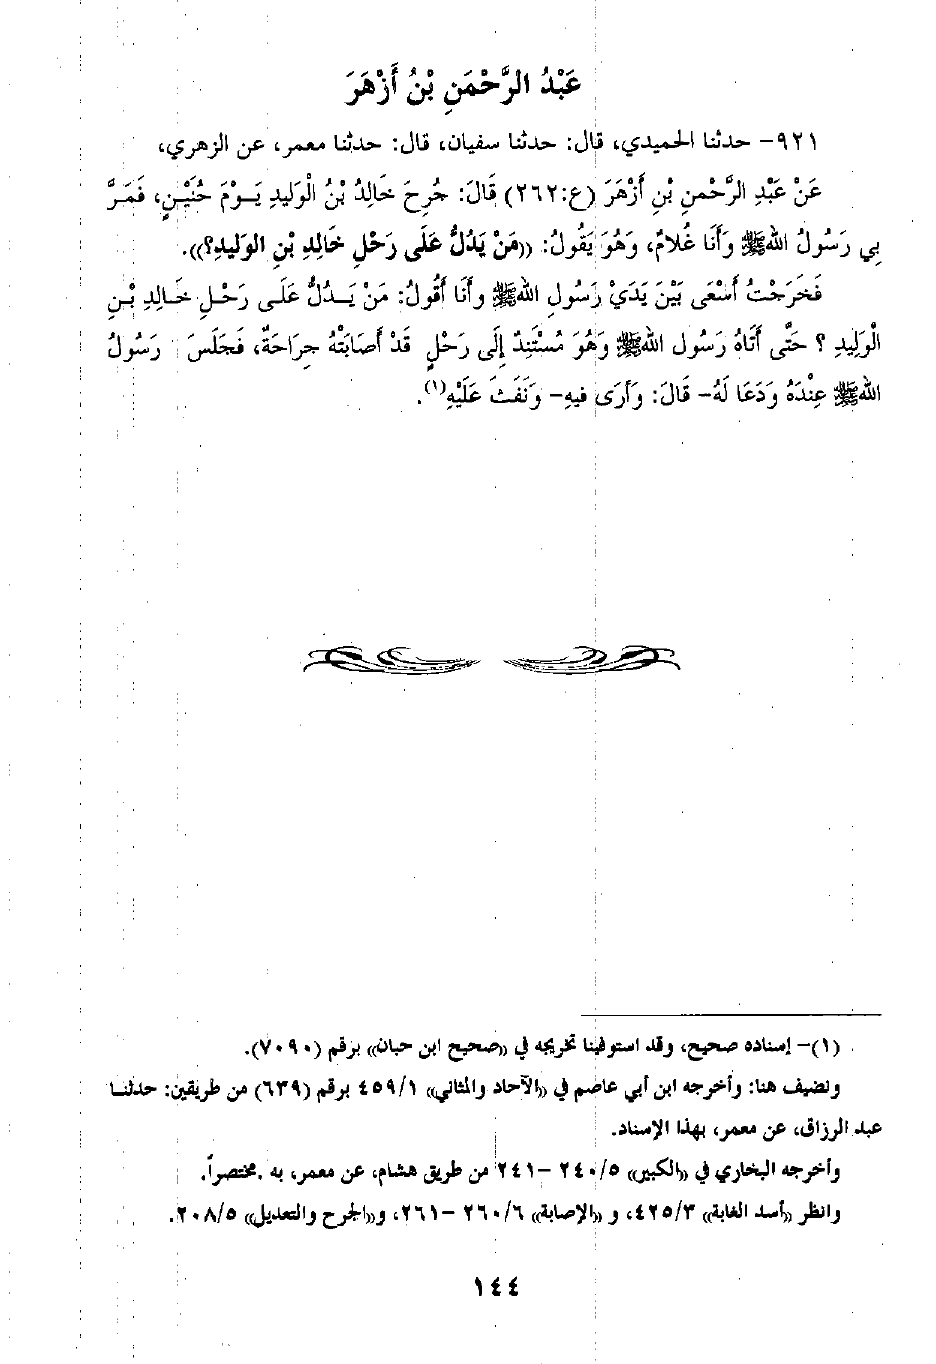 عَبْدُ الرَّحْمَنِ بْنُ أَزْهَرَ
٩٢١- حدثنا الحميدي، قال: حدثنا سفيان، قال: حدثنا معمر، عن الزهري،
عَنْ عَبْدِ الرَّحْمنِ بْنِ أَزْهَرَ (ع:٢٦٢) قَالَ: جُرِحَ خَالِدُ بْنُ الْوَلِيدِ يَـوْمَ حُنَيْـنٍ، فَمَـرَّ
بِي رَسُولُ اللهِ ﷺ وَأَنَا غُلَامٌ، وَهُوَ يَقُولُ: ((مَنْ يَدُلُّ عَلَى رَحْلِ خَالِدِ بْنِ الوَلِيدِ؟)).
فَخَرَجْتُ أَسْعَى بَيْنَ يَدَيْ رَسُولِ اللهِ ﷺ وأَنَا أَقُولُ: مَنْ يَـدُلُّ عَلَـى رَحْـلِ خَـالِدِ بْـنِ
الْوَلِيدِ ؟ حَتَّى أَتَاهُ رَسُول اللهِ ﷺ وَهُوَ مُسْتَنِدٌ إِلَى رَحْلٍ قَدْ أَصَابَتْهُ جِرَاحَةٌ، فَجَلَسَ رَسُولُ
اللهِ ﷺ عِنْدَهُ وَدَعَا لَهُ- قَالَ: وَأَرَى فِيهِ- وَنَفَثَ عَلَيْهِ(١).
(١)- إسناده صحيح، وقد استوفينا تخريجه في ((صحيح ابن حبان)) برقم (٧٠٩٠).
ونضيف هنا: وأخرجه ابن أبي عاصم في ((الآحاد والمثاني)) ٤٥٩/١ برقم (٦٣٩) من طريقين: حدثنـا
عبد الرزاق، عن معمر، بهذا الإسناد.
وأخرجه البخاري في ((الكبير)) ٢٤٠/٥ -٢٤١ من طريق هشام، عن معمر، به .مختصراً.
وانظر ((أسد الغابة)) ٤٢٥/٣، و ((الإصابة)) ٢٦٠/٦ -٢٦١، و((الجرح والتعديل)) ٢٠٨/٥.
١٤٤